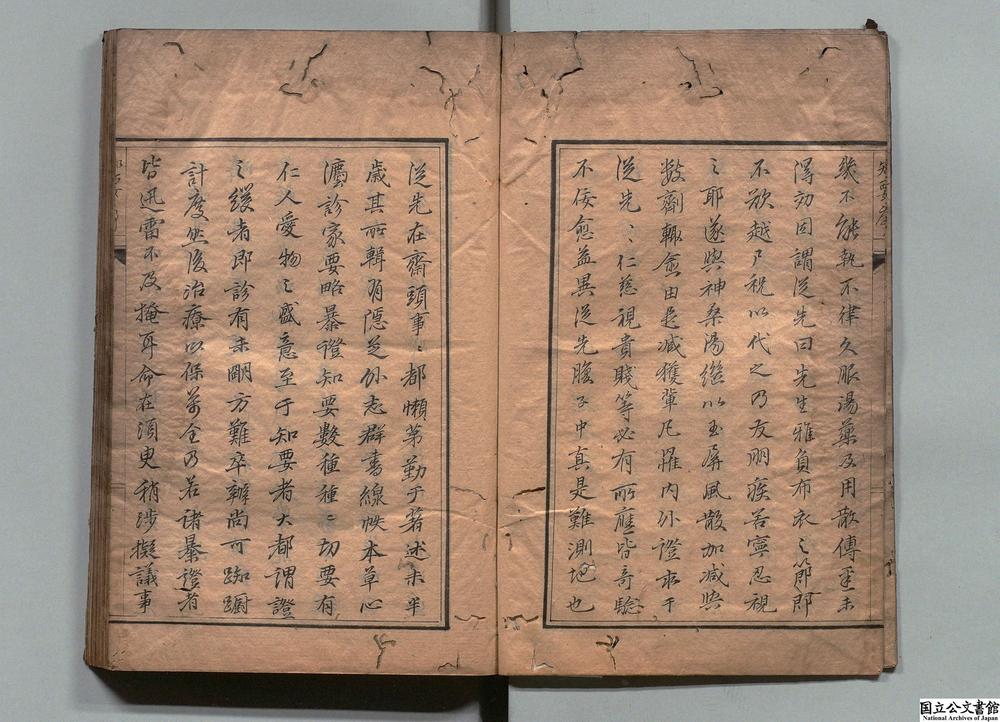 幾不能執不律久服湯藥及用散傅運未
得効因謂從先曰先生雅負布衣之節即
不欲越戸稅以代之乃友朋疾苦寧忍視
之耶遂與神桑湯繼以玉屏風散加減與
數劑輙愈由是減獲輩凡罹内外證取于
從先〻仁慈視貴賤等必有所應皆奇驗
不佞愈益異從先腹子中真是難測地也
從先在齋頭事〻都懶苐勤于著述未半
歲其所輯有隠芝外志群書線帙本草心
灋診家要略暴證知要數種種〻切要有
仁人愛物之盛意至于知要者大都謂證
之緩者即診有未明方難卒辦尚可踟蹰
計度然後治療以保萬全乃若諸暴證者
皆迅雷不及掩耳命在湏臾稍涉擬議事
國立公文書館
National Archives of Japan